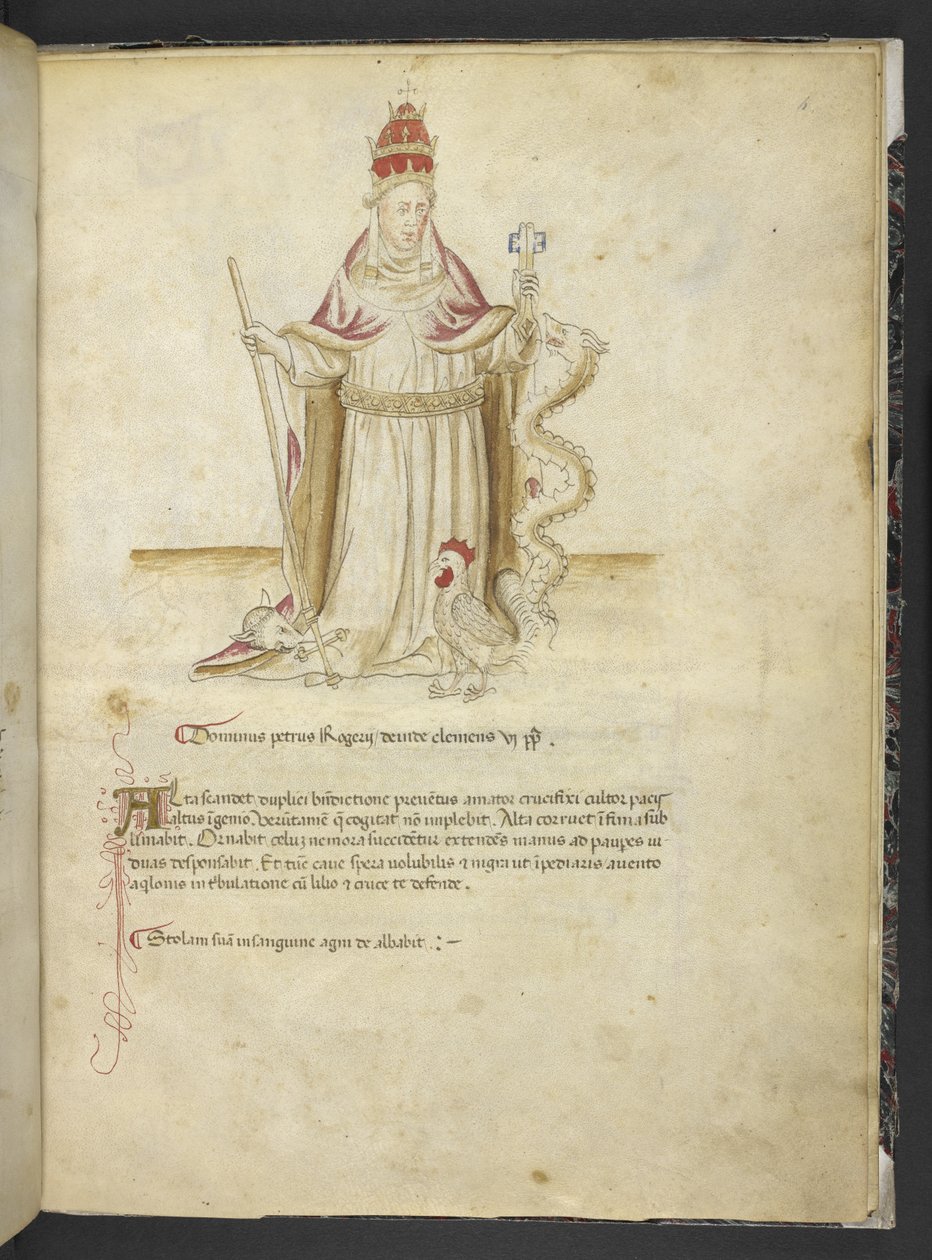 Dominus petrus Rogerij / deinde clemens vj pp̄ .
Alta scandet duplici bn̄dictione preuētus amator crucifixi cultor pacis
altus īgenio. Verūtamē q̄ cogitat nō implebit. Alta corruet ī fima sub
limabit. Ornabit celuȝ nemora succidētur extendēs manus ad paupes vi
duas desponsabit. Et tūc caue spera uolubilis ⁊ nigra ut īpediaris auento
aqlonis in t'bulatione cū lilio ⁊ cruce te defende.
Stolam suā in sanguine agni de albabit .:—